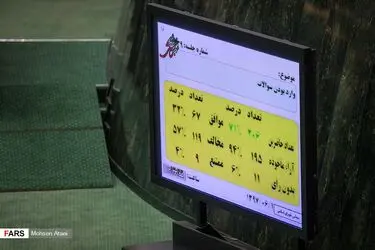 شماره جلسه: ۹
موضوع:
وارد بودن سوالات
تعداد درصد تعداد درصد
تعداد حاضرین ۲۰۶ ۷۱% موافق ۶۷ ۳۲%
آراء ماخوذه ۱۹۵ ۹۴% مخالف ۱۱۹ ۵۷%
بدون رأی ۱۱ ۶% ممتنع ۹ ۴%
ساعت:
FARS
Photo: Mohsen Ataei